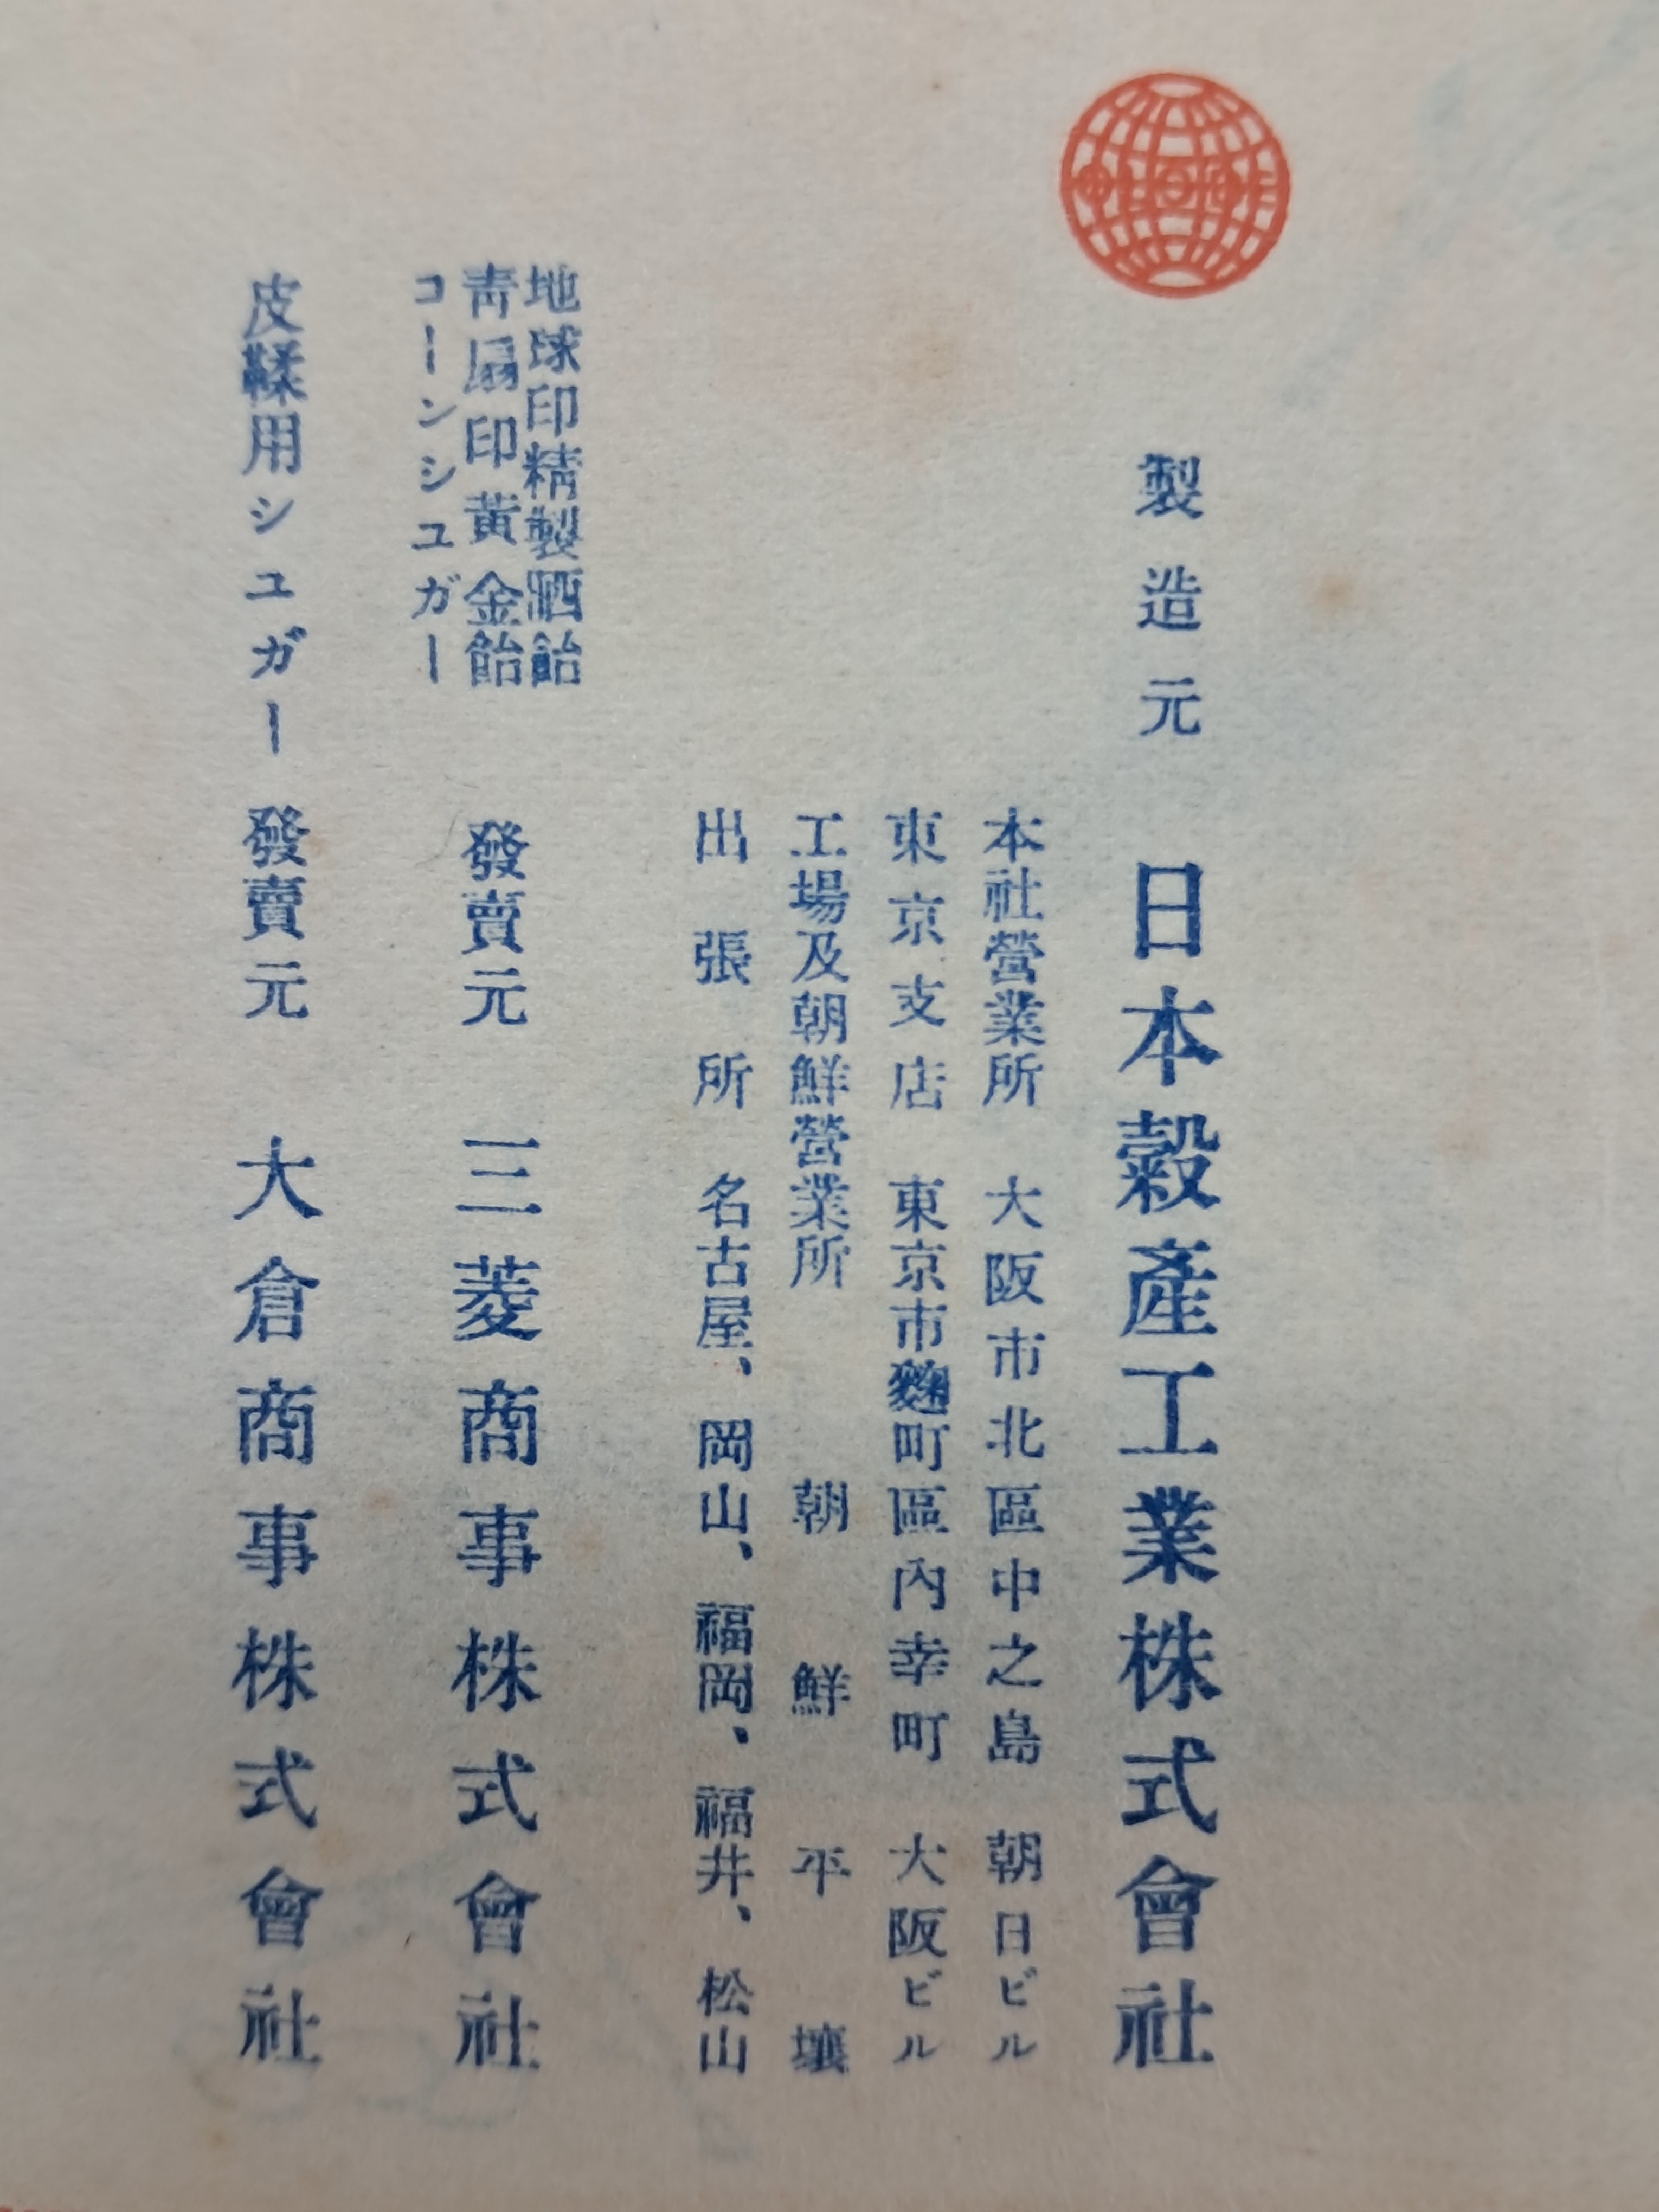 製造元 日本穀產工業株式會社
本社營業所 大阪市北區中之島 朝日ビル
東京支店 東京市麴町區內幸町 大阪ビル
工場及朝鮮營業所 朝鮮平壤
出張所 名古屋、岡山、福岡、福井、松山
地球印精製酒飴
靑扇印黃金飴
コーンシュガー
發賣元 三菱商事株式會社
皮鞣用シュガー 發賣元 大倉商事株式會社